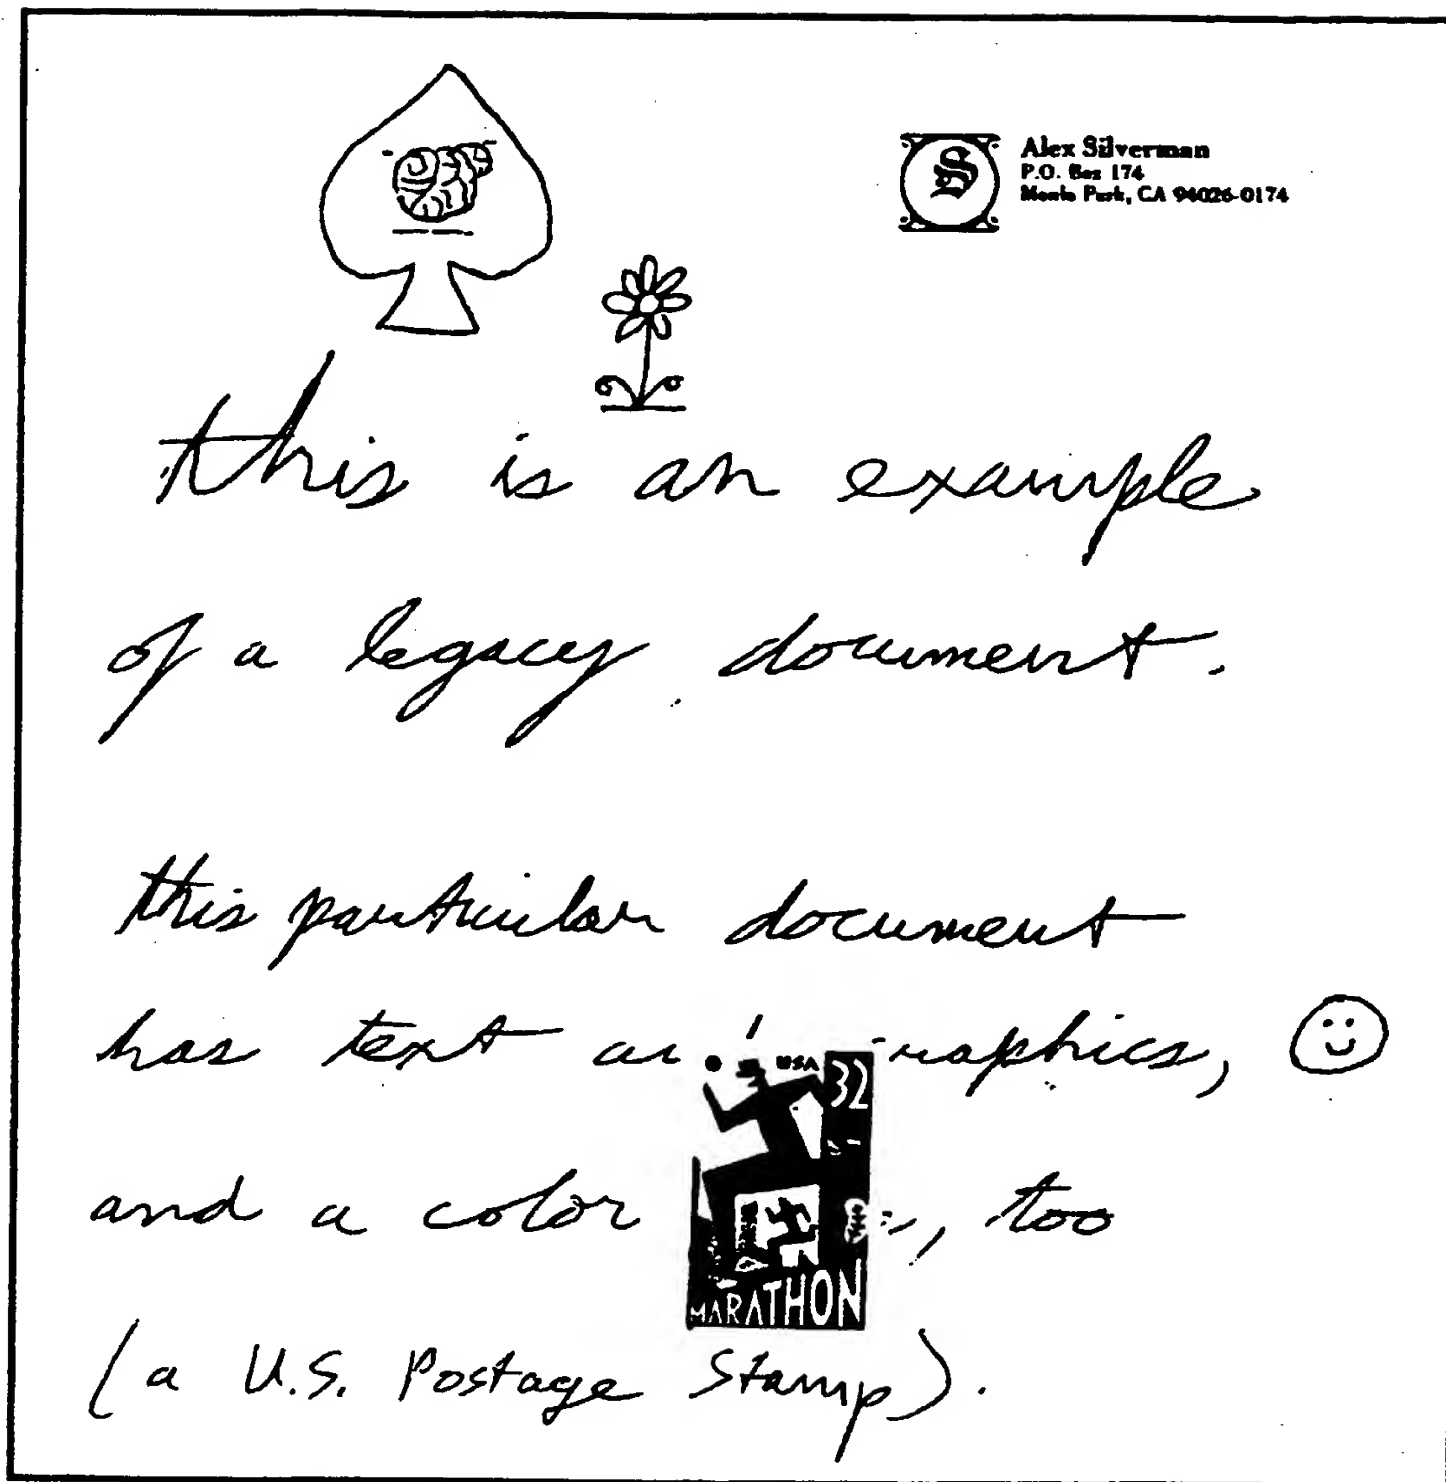 S
Alex Silverman
P.O. Box 174
Menlo Park, CA 94026-0174
this is an example
of a legacy document.
this particular document
has text and graphics,
USA 32
and a color , too
MARATHON
(a U.S. Postage Stamp).